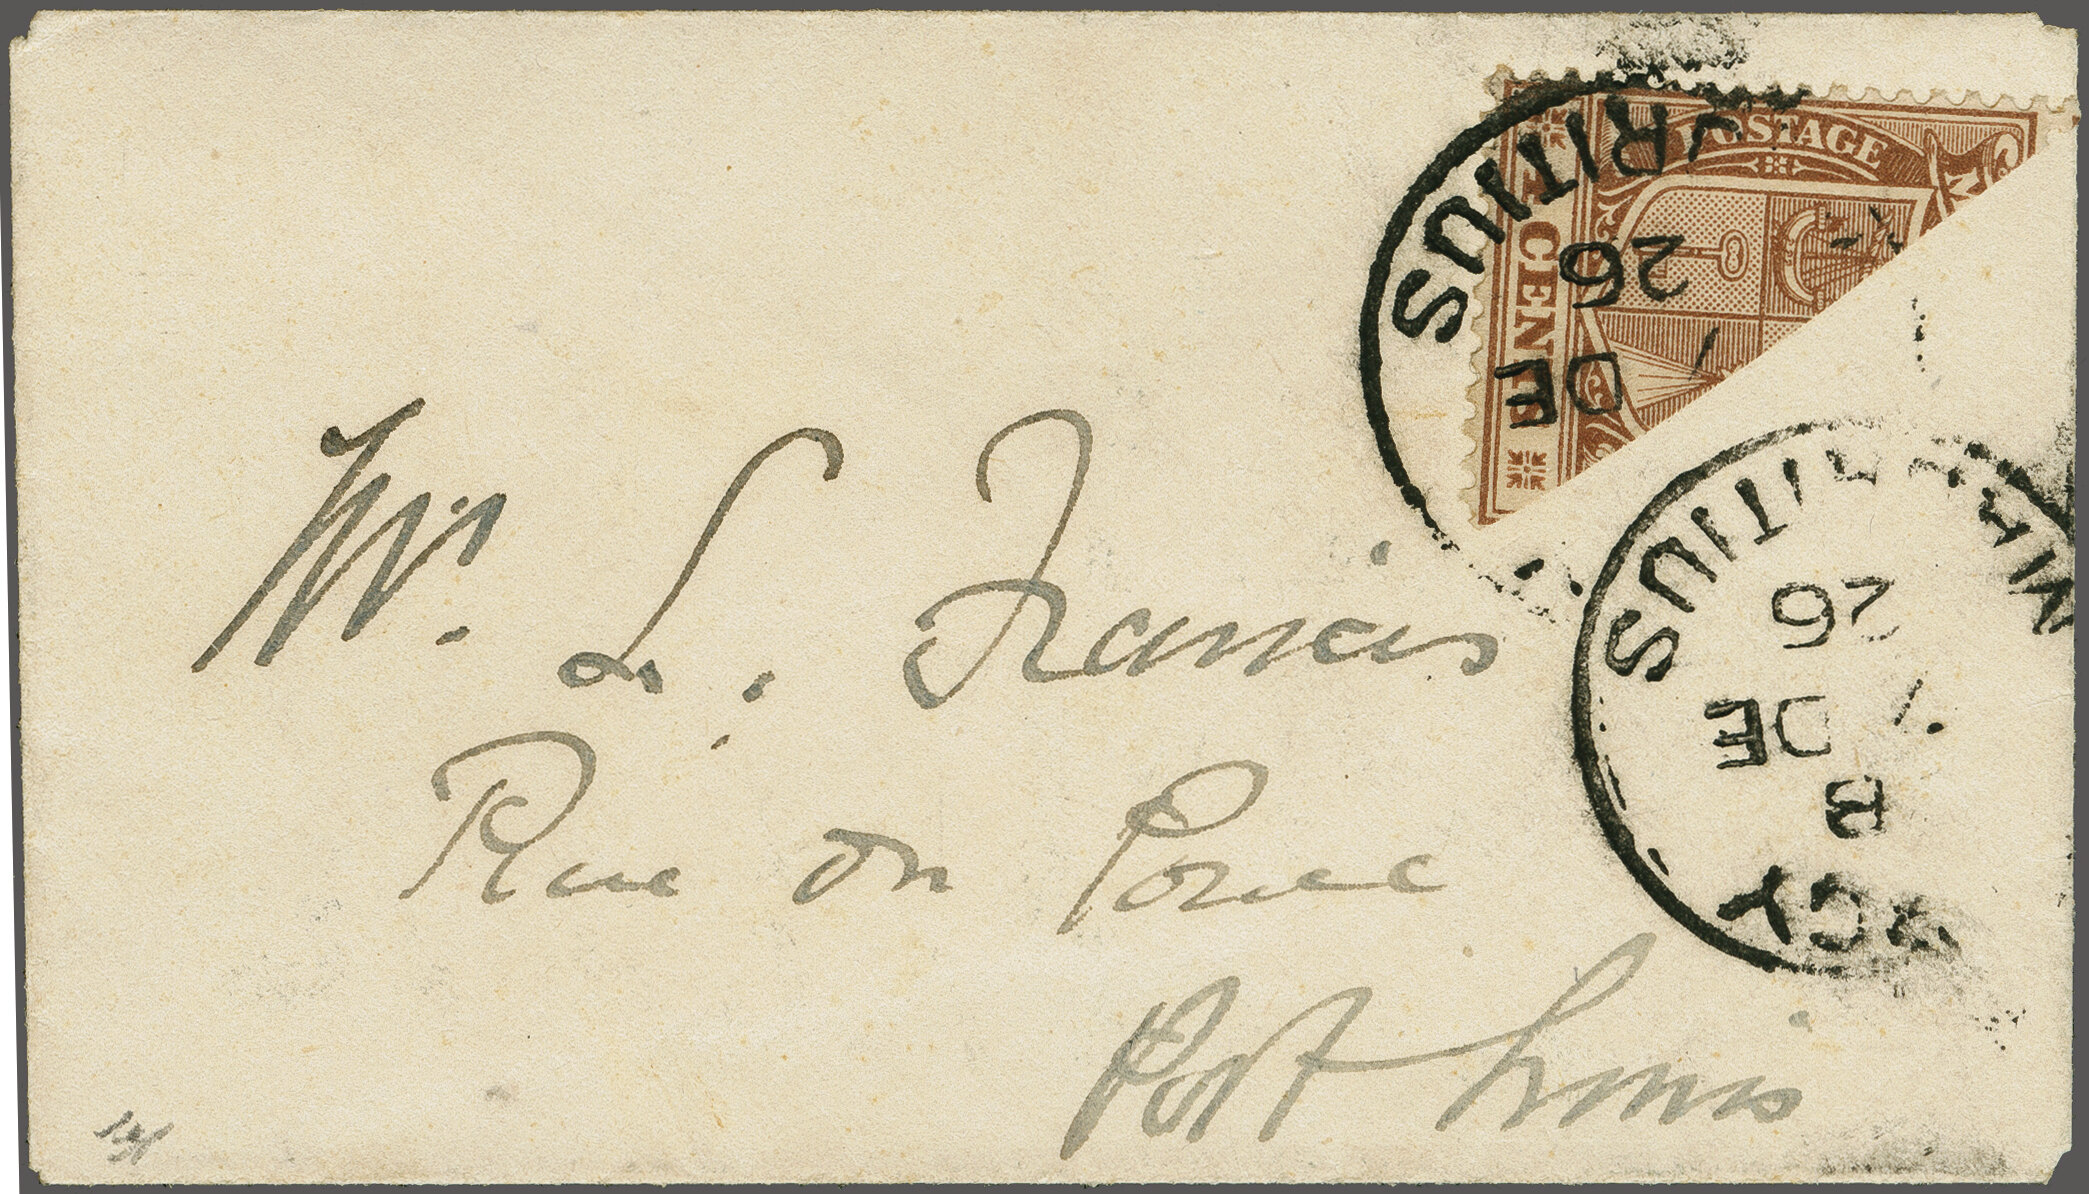 POSTAGE
CENTS
MAURITIUS
26
DE
MAURITIUS
26
DE
B
CY
Mr. L. Francis
Rue
Port Louis